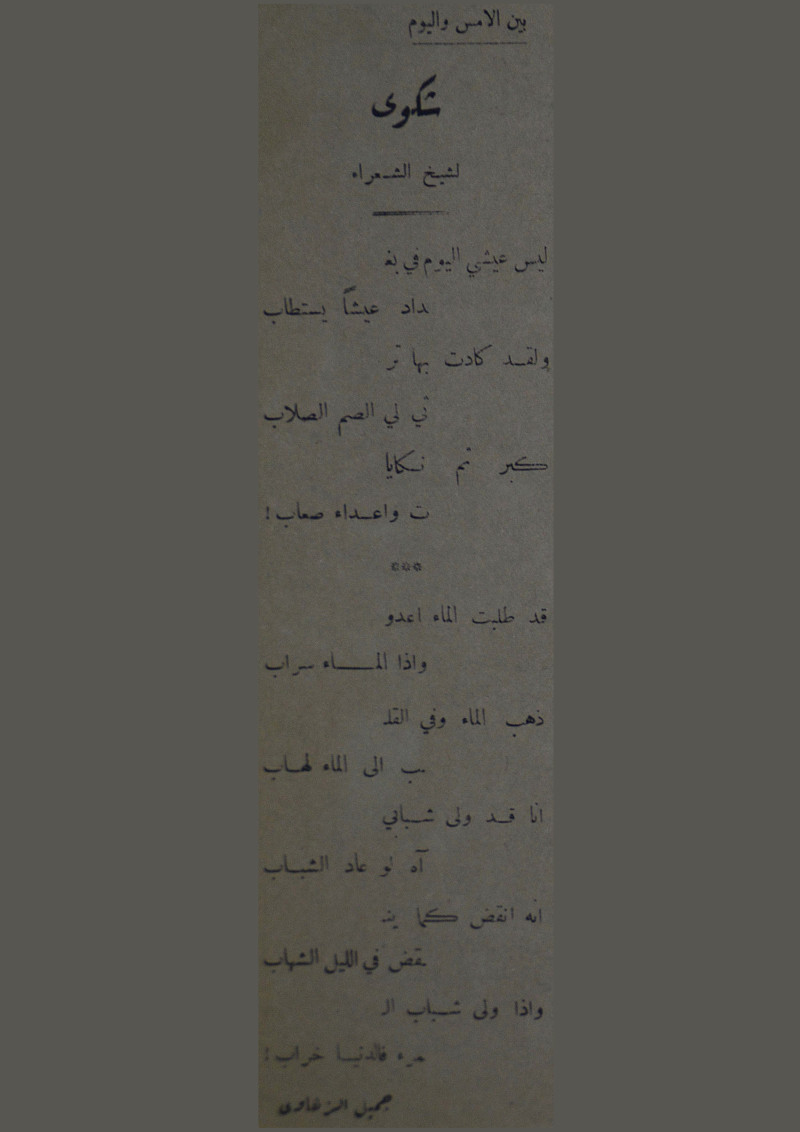 بين الامس واليوم
شكوى
لشيخ الشعراء
ليس عيشي اليوم في بغـ
ـداد عيشاً يستطاب
ولقد كادت بها تر
ثي لي الصم الصلاب
كبر ثم نكايا
ت واعداء صعاب!
قد طلبت الماء اعدو
واذا الماء سراب
ذهب الماء وفي القلـ
ـب الى الماء لهاب
انا قد ولى شبابي
آه لو عاد الشباب
انه انقض كما ينـ
ـقض في الليل الشهاب
واذا ولى شباب الـ
ـمرء فالدنيا خراب!
جميل الزهاوى